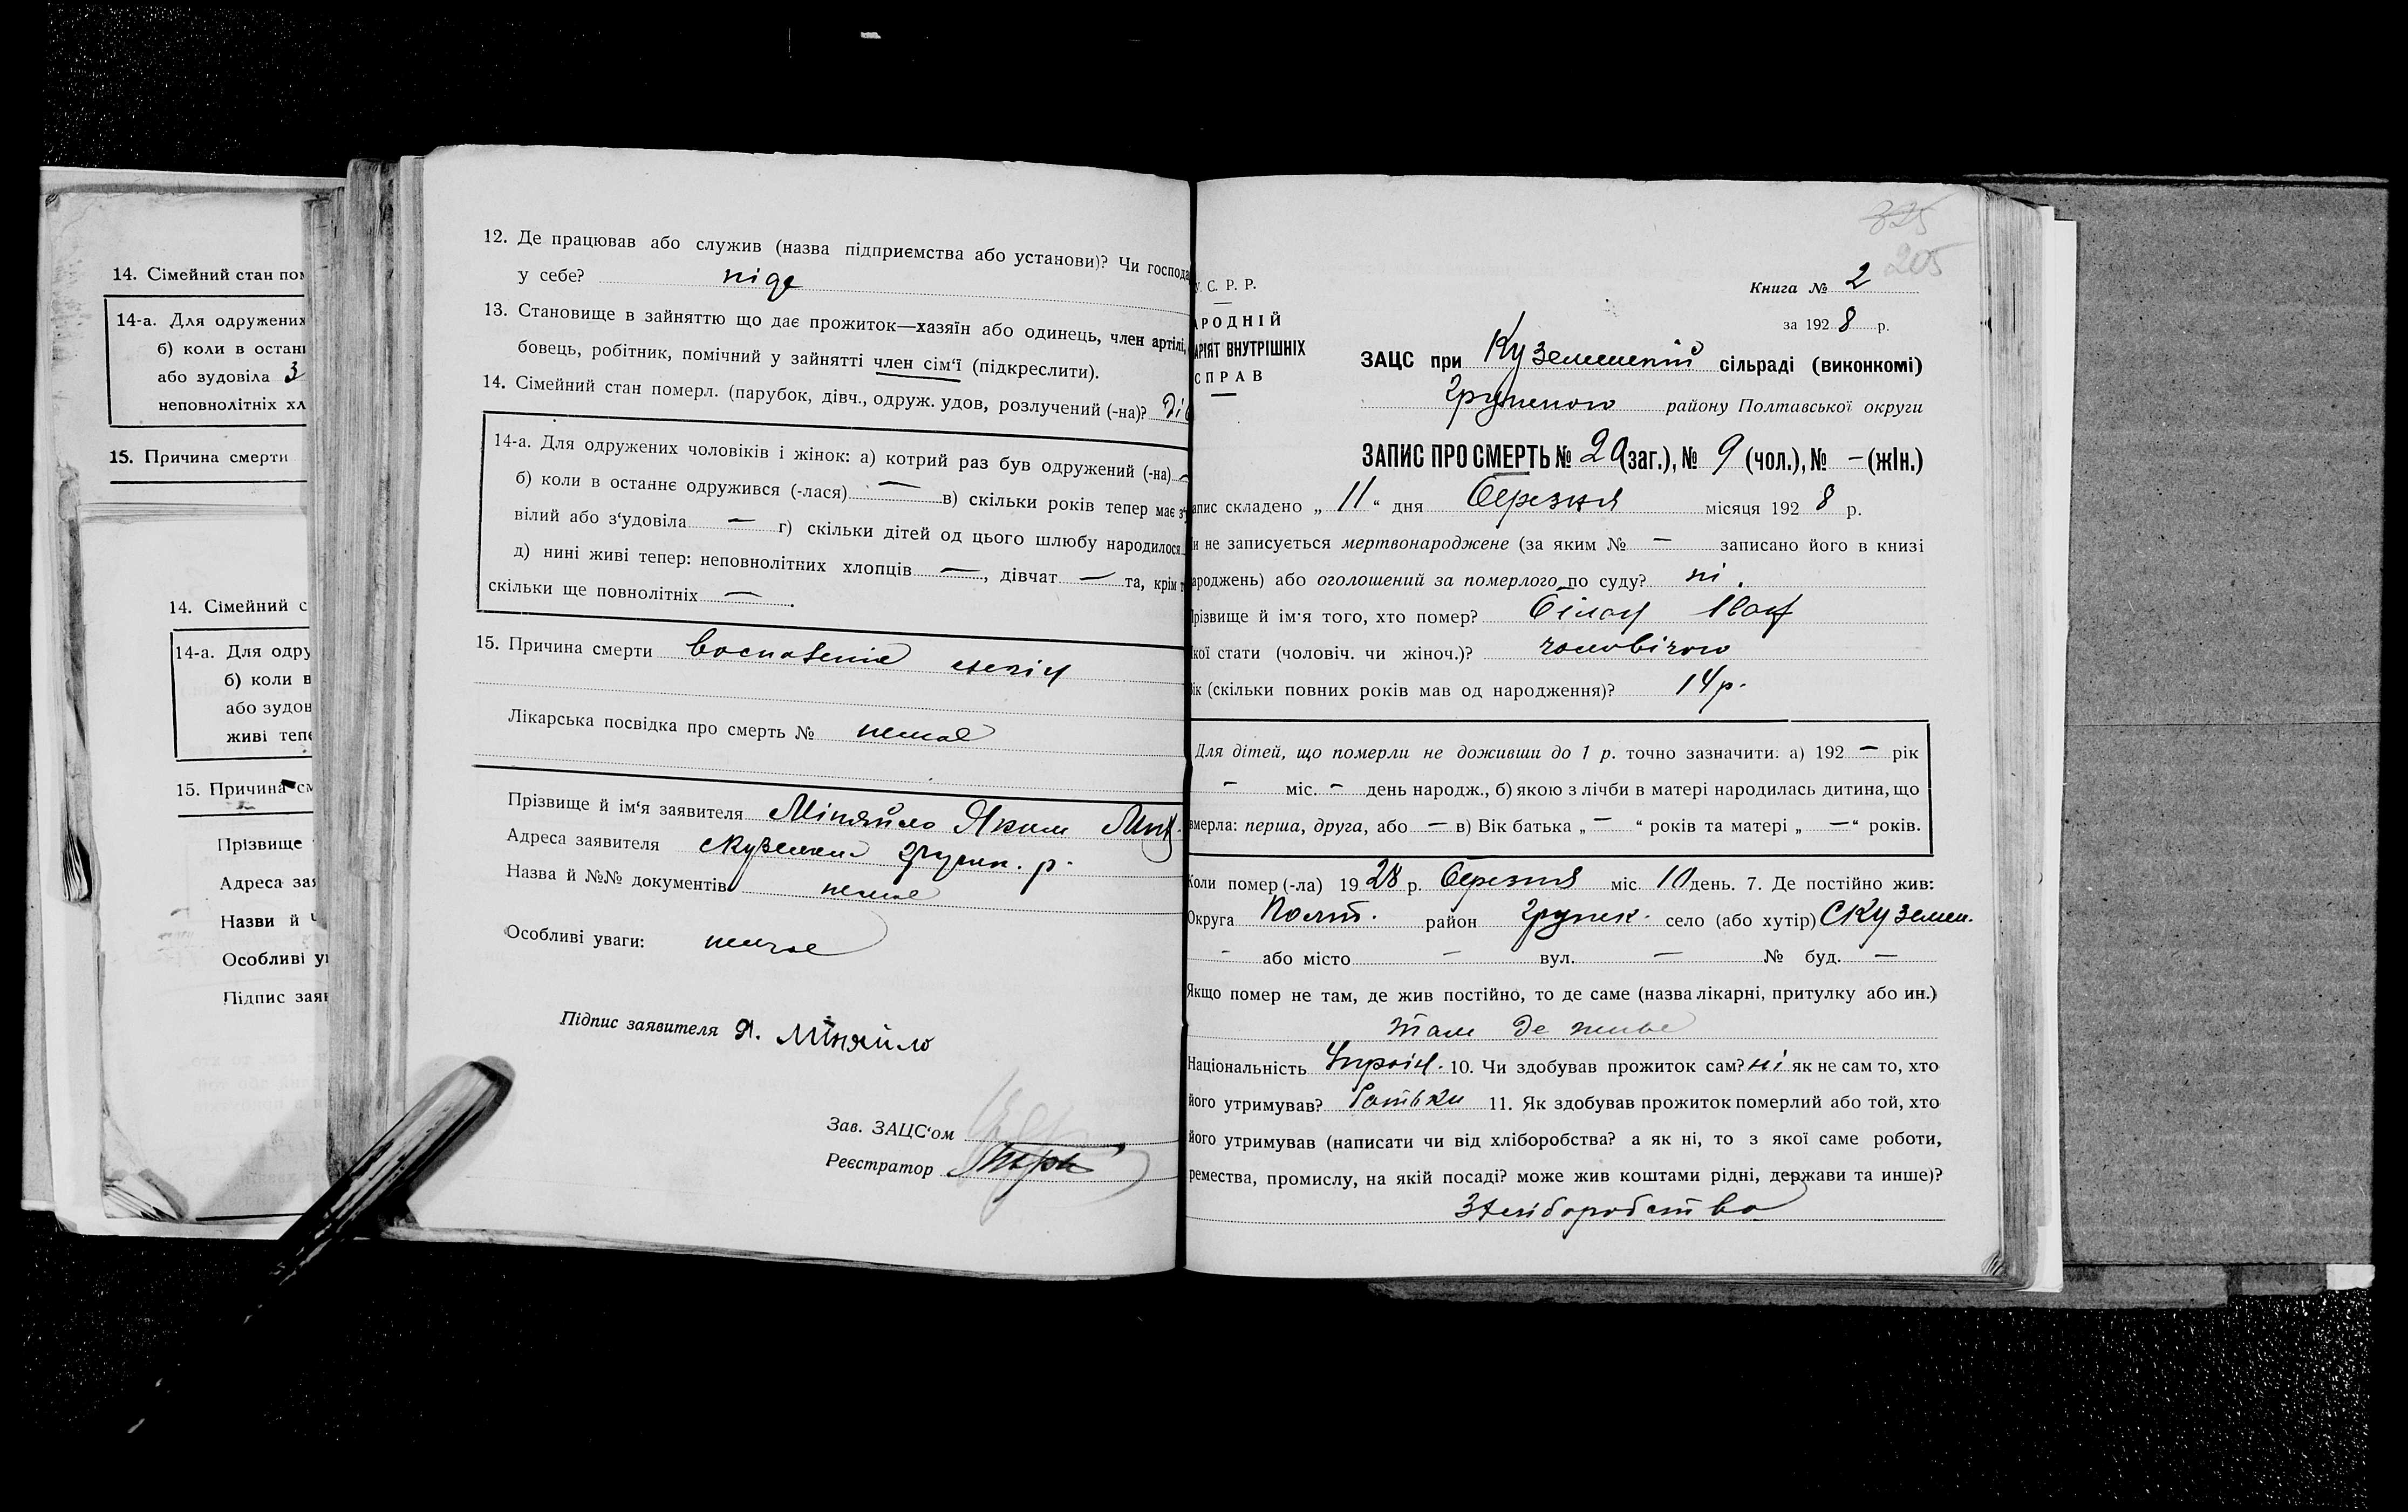 14. Сімейний стан пом
14-а. Для одружених
б) коли в останн
або зудовіла 3
неповнолітніх хл
15. Причина смерти
14. Сімейний с
14-а. Для одру
б) коли в
або зудов
живі тепе
15. Причина см
Прізвище
Адреса зая
Назви й
Особливі ув
Підпис заяв
12. Де працював або служив (назва підприємства або установи)? Чи господа
у себе? ніде
13. Становище в зайняттю що дає прожиток—хазяїн або одинець, член артілі,
бовець, робітник, помічний у зайнятті член сім'ї (підкреслити).
14. Сімейний стан померл. (парубок, дівч., одруж. удов, розлучений (-на)? ді
14-а. Для одружених чоловіків і жінок: а) котрий раз був одружений (-на) —
б) коли в останнє одружився (-лася) — в) скільки років тепер має з'у
вілий або з'удовіла — г) скільки дітей од цього шлюбу народилося
д) нині живі тепер: неповнолітних хлопців —, дівчат — та, крім т
скільки ще повнолітніх —.
15. Причина смерти воспаленіе легких
Лікарська посвідка про смерть № немає
Прізвище й ім'я заявителя Міняйло Яким
Адреса заявителя с Куземен грунк. р.
Назва й №№ документів немає
Особливі уваги: немає
Підпис заявителя Я. Міняйло
Зав. ЗАЦС'ом
Реєстратор
325
205
У. С. Р. Р.
АРОДНІЙ
АРІЯТ ВНУТРІШНІХ
СПРАВ
Книга № 2
за 1928 р.
ЗАЦС при Куземенській сільраді (виконкомі)
грунського району Полтавської округи
ЗАПИС ПРО СМЕРТЬ № 20 (заг.), № 9 (чол.), № — (жін.)
апис складено „11“ дня Березня місяця 1928 р.
и не записується мертвонароджене (за яким № — записано його в книзі
ароджень) або оголошений за померлого по суду? ні.
Прізвище й ім'я того, хто помер? Білан Іван
кої статі (чоловіч. чи жіноч.)? чоловічого
Вік (скільки повних років мав од народження)? 14 р.
Для дітей, що померли не доживши до 1 р. точно зазначити: а) 192 — рік
— міс. — день народж., б) якою з лічби в матері народилась дитина, що
вмерла: перша, друга, або — в) Вік батька „—“ років та матері „—“ років.
Коли помер (-ла) 1928 р. Березня міс. 10 день. 7. Де постійно жив:
Округа Полт. район грунск. село (або хутір) С Куземен.
— або місто — вул. — № буд. —
Якщо помер не там, де жив постійно, то де саме (назва лікарні, притулку або ин.)
там де живе
Національність Украін. 10. Чи здобував прожиток сам? ні як не сам то, хто
його утримував? батьки 11. Як здобував прожиток померлий або той, хто
його утримував (написати чи від хліборобства? а як ні, то з якої саме роботи,
ремества, промислу, на якій посаді? може жив коштами рідні, держави та инше)?
З хліборобства